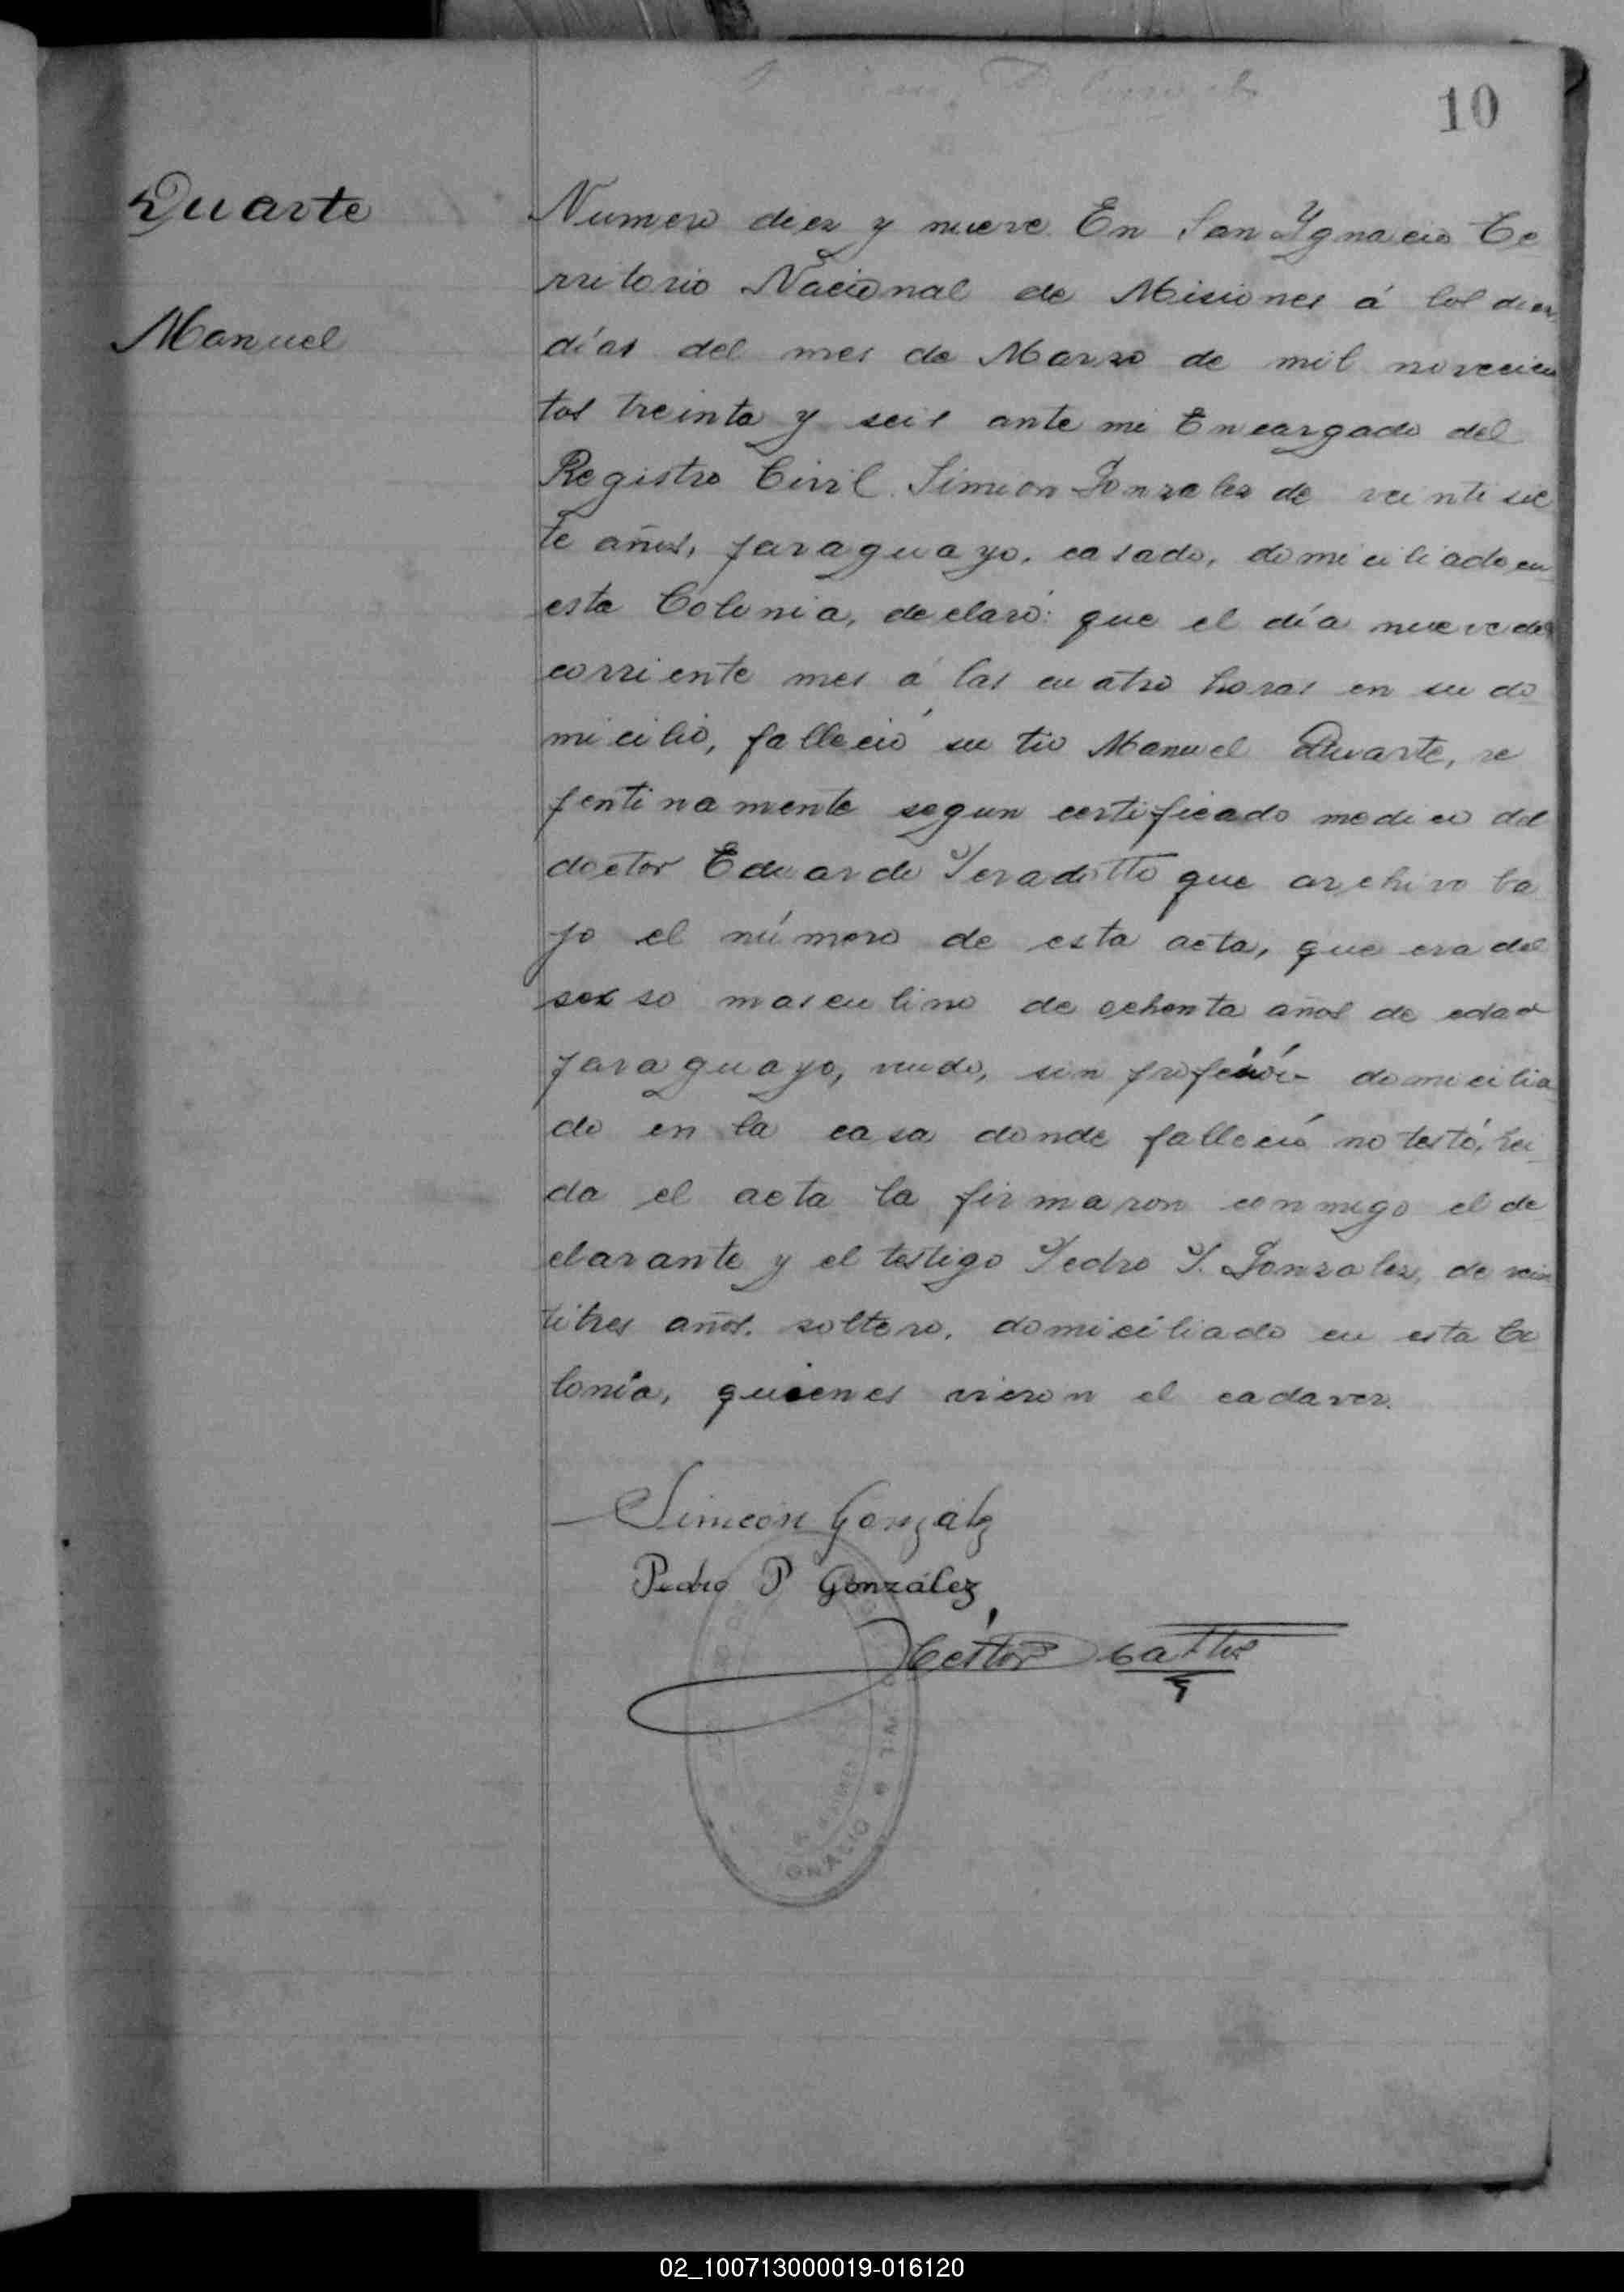 10
Duarte
Manuel
Numero diez y nueve. En San Ygnacio Te
rritorio Nacional de Misiones á los diez
días del mes de Marzo de mil novecien
tos treinta y seis ante mi Encargado del
Registro Civil. Simeon Gonzalez de veinti sie
te años, paraguayo, casado, domiciliado en
esta Colonia, declaró: que el día nueve del
corriente mes á las cuatro horas en su do
micilio, falleció su tio Manuel Duarte, re
pentinamente segun certificado medico del
doctor Eduardo que archivo ba
jo el número de esta acta, que era del
sexso masculino de ochenta años de edad
paraguayo, viudo, sin profesión domicilia
do en la casa donde falleció no testó, lei
da el acta la firmaron conmigo el de
clarante y el testigo Pedro P. Gonzalez, de vein
titres años, soltero, domiciliado en esta Co
lonia, quienes vieron el cadaver.
Simeón González
Pedro P González
Héctor
IGNACIO
02_100713000019-016120